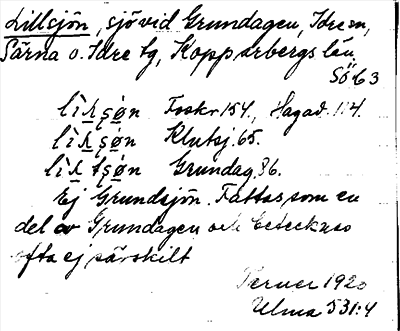 Lillsjön, sjö vid Grundagen, Idre sn,
Särna o. Idre tg, Kopparbergs län
Sö 63
Foskr 154, Hagad. 1:4.
Klutsj. 65.
Grundag. 86.
Ej Grundsjön. Fattas som en
del av Grundagen och betecknas
ofta ej särskilt
Terner 1920
Ulma 531:4